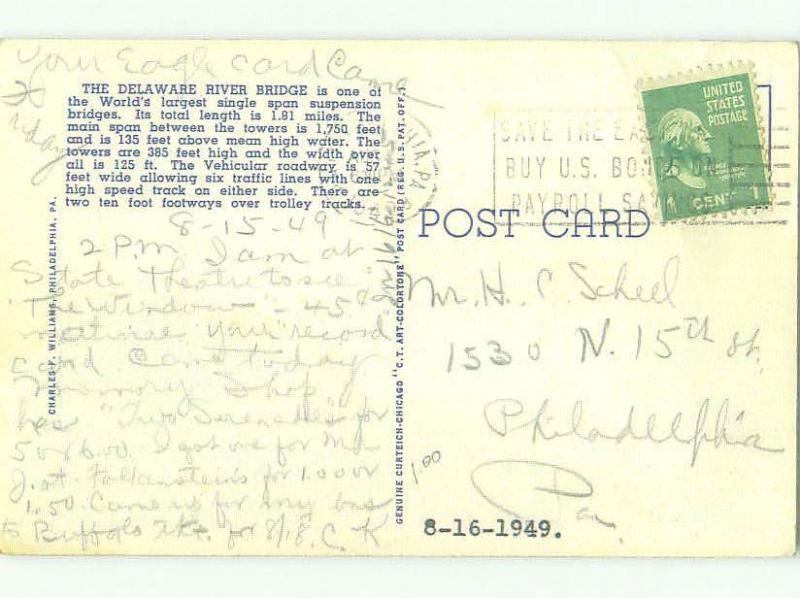 Your Eagle card Came
THE DELAWARE RIVER BRIDGE is one of
the World's largest single span suspension
bridges. Its total length is 1.81 miles. The
main span between the towers is 1,750 feet
and is 135 feet above mean high water. The
towers are 385 feet high and the width over
all is 125 ft. The Vehicular roadway is 57
feet wide allowing six traffic lines with one
high speed track on either side. There are
two ten foot footways over trolley tracks.
8-15-49
2 P.M. I am at
State Theatre to see
"The Window" - 45¢
matinee your record
card Came today
Shop
has "Two Serenades" for
5.00 I got one for
J. at Falkenstein's for 1.00 or
1.50. Came up for my bus
Buffalo Tkt. for 8/18. C. K
CHARLES P. WILLIAMS, PHILADELPHIA, PA.
GENUINE CURTEICH-CHICAGO "C.T. ART-COLORTONE" POST CARD (REG. U.S. PAT. OFF.)
SAVE THE
BUY U.S. BONDS ON
PAYROLL
UNITED
STATES
POSTAGE
1 CENT
POST CARD
Mr. H. C. Scheel
1530 N. 15th St.
Philadelphia
Pa.
1.00
8-16-1949.